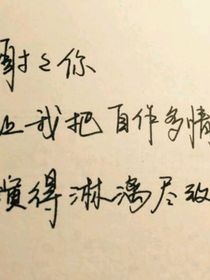 谢谢你
让我把自作多情
演得淋漓尽致